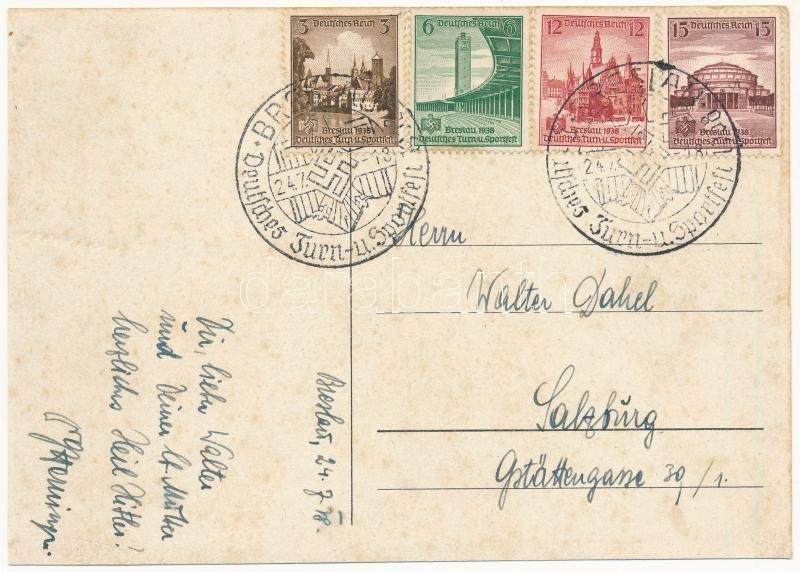 3 Deutsches Reich 3
Breslau 1938
Deutsches Turn-u. Sportfest
6 Deutsches Reich 6
Breslau 1938
Deutsches Turn-u. Sportfest
12 Deutsches Reich 12
Breslau 1938
Deutsches Turn-u. Sportfest
15 Deutsches Reich 15
Breslau 1938
Deutsches Turn-u. Sportfest
Deutsches Turn-u. Sportfest
24.7.
Deutsches Turn-u. Sportfest
24.7.
Herrn
Walter Dahel
Salzburg
Gstättengasse 39/1.
Breslau, 24. 7. 38.
Dir, lieber Walter
und Deiner lb. Mutter
herzliches Heil Hitler!
darabanth